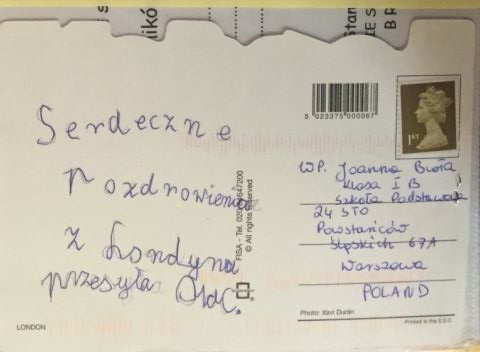 Serdeczne
Pozdrowienia
z Londynu
przesyła
LONDON
FISA - Tel. 020
© All rights reserved
5 023375 000087
1ST
W.P. Joanna Biała
Klasa I B
Szkoła Podstawowa
24 STO
Powstańców
Śląskich 67A
Warszawa
POLAND
Photo: Xavi Durán
Printed in the E.E.C